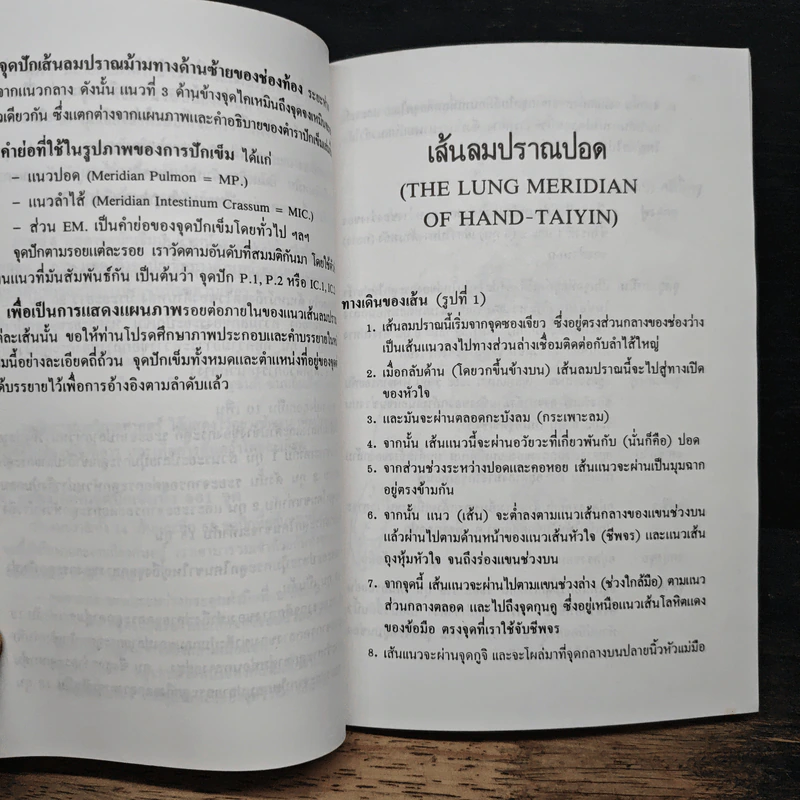 จุดปักเส้นลมปราณม้ามทางด้านซ้ายของช่องท้อง
จากแนวกลาง ดังนั้น แนวที่ 3 ด้านข้างจุดไคเหมินถึงจุด
เดียวกัน ซึ่งแตกต่างจากแผนภาพและคำอธิบายของตำราปักเข็ม
คำย่อที่ใช้ในรูปภาพของการปักเข็ม ได้แก่
– แนวปอด (Meridian Pulmon = MP.)
– แนวลำไส้ (Meridian Intestinum Crassum = MIC.)
– ส่วน EM. เป็นคำย่อของจุดปักเข็มโดยทั่วไป ฯลฯ
จุดปักตามรอยแต่ละรอย เราวัดตามอันดับที่สมมติกันมา โดยใช้
แนวที่มันสัมพันธ์กัน เป็นต้นว่า จุดปัก P.1, P.2 หรือ IC.1, IC.2
เพื่อเป็นการแสดงแผนภาพรอยต่อภายในของแนวเส้นลมปราณ
ต่ละเส้นนั้น ขอให้ท่านโปรดศึกษาภาพประกอบและคำบรรยายใน
มนี้อย่างละเอียดถี่ถ้วน จุดปักเข็มทั้งหมดและตำแหน่งที่อยู่ของจุด
ด้บรรยายไว้เพื่อการอ้างอิงตามลำดับแล้ว
เส้นลมปราณปอด
(THE LUNG MERIDIAN
OF HAND-TAIYIN)
ทางเดินของเส้น (รูปที่ 1)
1. เส้นลมปราณนี้เริ่มจากจุดซองเจียว ซึ่งอยู่ตรงส่วนกลางของช่องว่าง
เป็นเส้นแนวลงไปทางส่วนล่างเชื่อมติดต่อกับลำไส้ใหญ่
2. เมื่อกลับด้าน (โดยวกขึ้นข้างบน) เส้นลมปราณนี้จะไปสู่ทางเปิด
ของหัวใจ
3. และมันจะผ่านตลอดกะบังลม (กระเพาะลม)
4. จากนั้น เส้นแนวนี้จะผ่านอวัยวะที่เกี่ยวพันกับ (นั่นก็คือ) ปอด
5. จากส่วนช่วงระหว่างปอดและคอหอย เส้นแนวจะผ่านเป็นมุมฉาก
อยู่ตรงข้ามกัน
6. จากนั้น แนว (เส้น) จะต่ำลงตามแนวเส้นกลางของแขนช่วงบน
แล้วผ่านไปตามด้านหน้าของแนวเส้นหัวใจ (ชีพจร) และแนวเส้น
ถุงหุ้มหัวใจ จนถึงร่องแขนช่วงบน
7. จากจุดนี้ เส้นแนวจะผ่านไปตามแขนช่วงล่าง (ช่วงใกล้มือ) ตามแนว
ส่วนกลางตลอด และไปถึงจุดกุนคู ซึ่งอยู่เหนือแนวเส้นโลหิตแดง
ของข้อมือ ตรงจุดที่เราใช้จับชีพจร
8. เส้นแนวจะผ่านจุดกูจิ และจะโผล่มาที่จุดกลางบนปลายนิ้วหัวแม่มือ